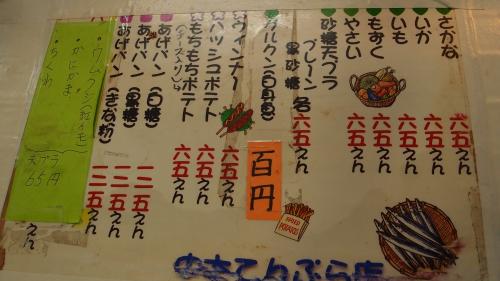 さかな 六五えん
いか 六五えん
いも 六五えん
もずく 六五えん
やさい 六五えん
砂糖天プラ
プレーン
黒砂糖 各六五えん
ガルクン(白身魚)
百円
ウインナー 六五えん
ハッシュポテト 六五えん
もちもちポテト 六五えん
(チーズ入り)
あげパン(白糖) 一二五えん
あげパン(黒糖) 一二五えん
あげパン(きな粉) 一二五えん
えん
ウムクジ(紅イモ)
かにかま
ちくわ
天プラ
65円
FRIED
POTATO
てんぷら店